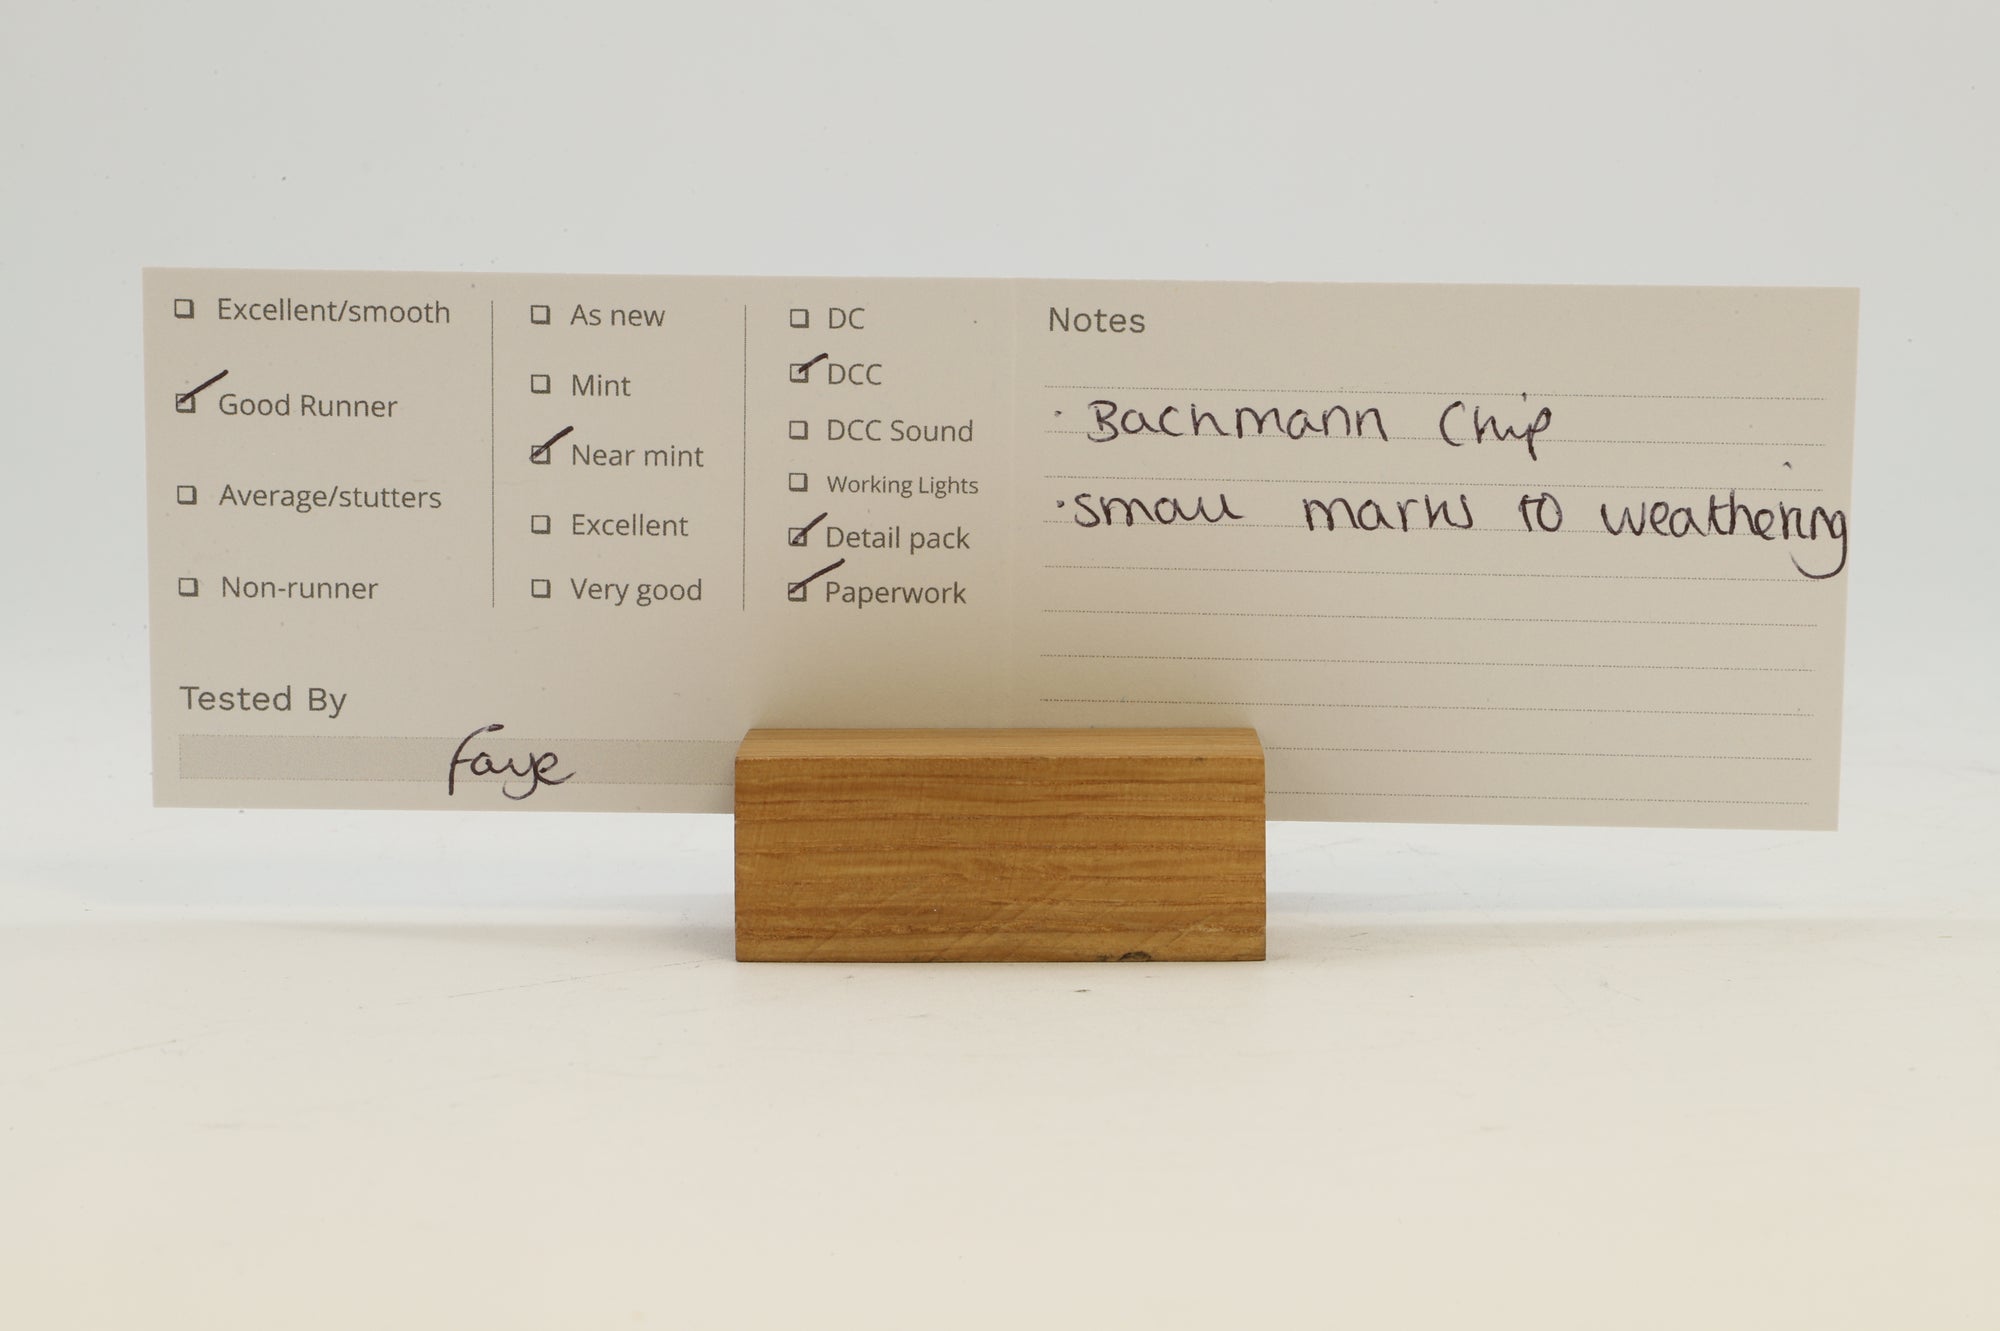 Excellent/smooth
Good Runner
Average/stutters
Non-runner
As new
Mint
Near mint
Excellent
Very good
DC
DCC
DCC Sound
Working Lights
Detail pack
Paperwork
Tested By
Faye
Notes
· Bachmann Chip
· small marks to weathering